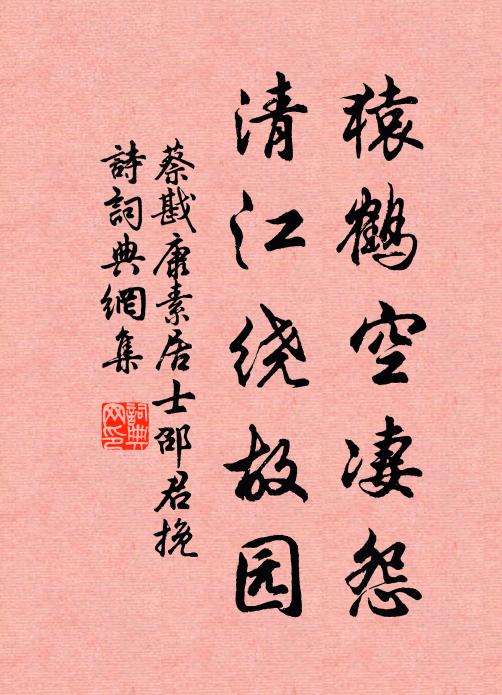 猿鹤空凄怨
清江绕故园
蔡戡康素居士邵君挽
詩詞典網集
詞典网印